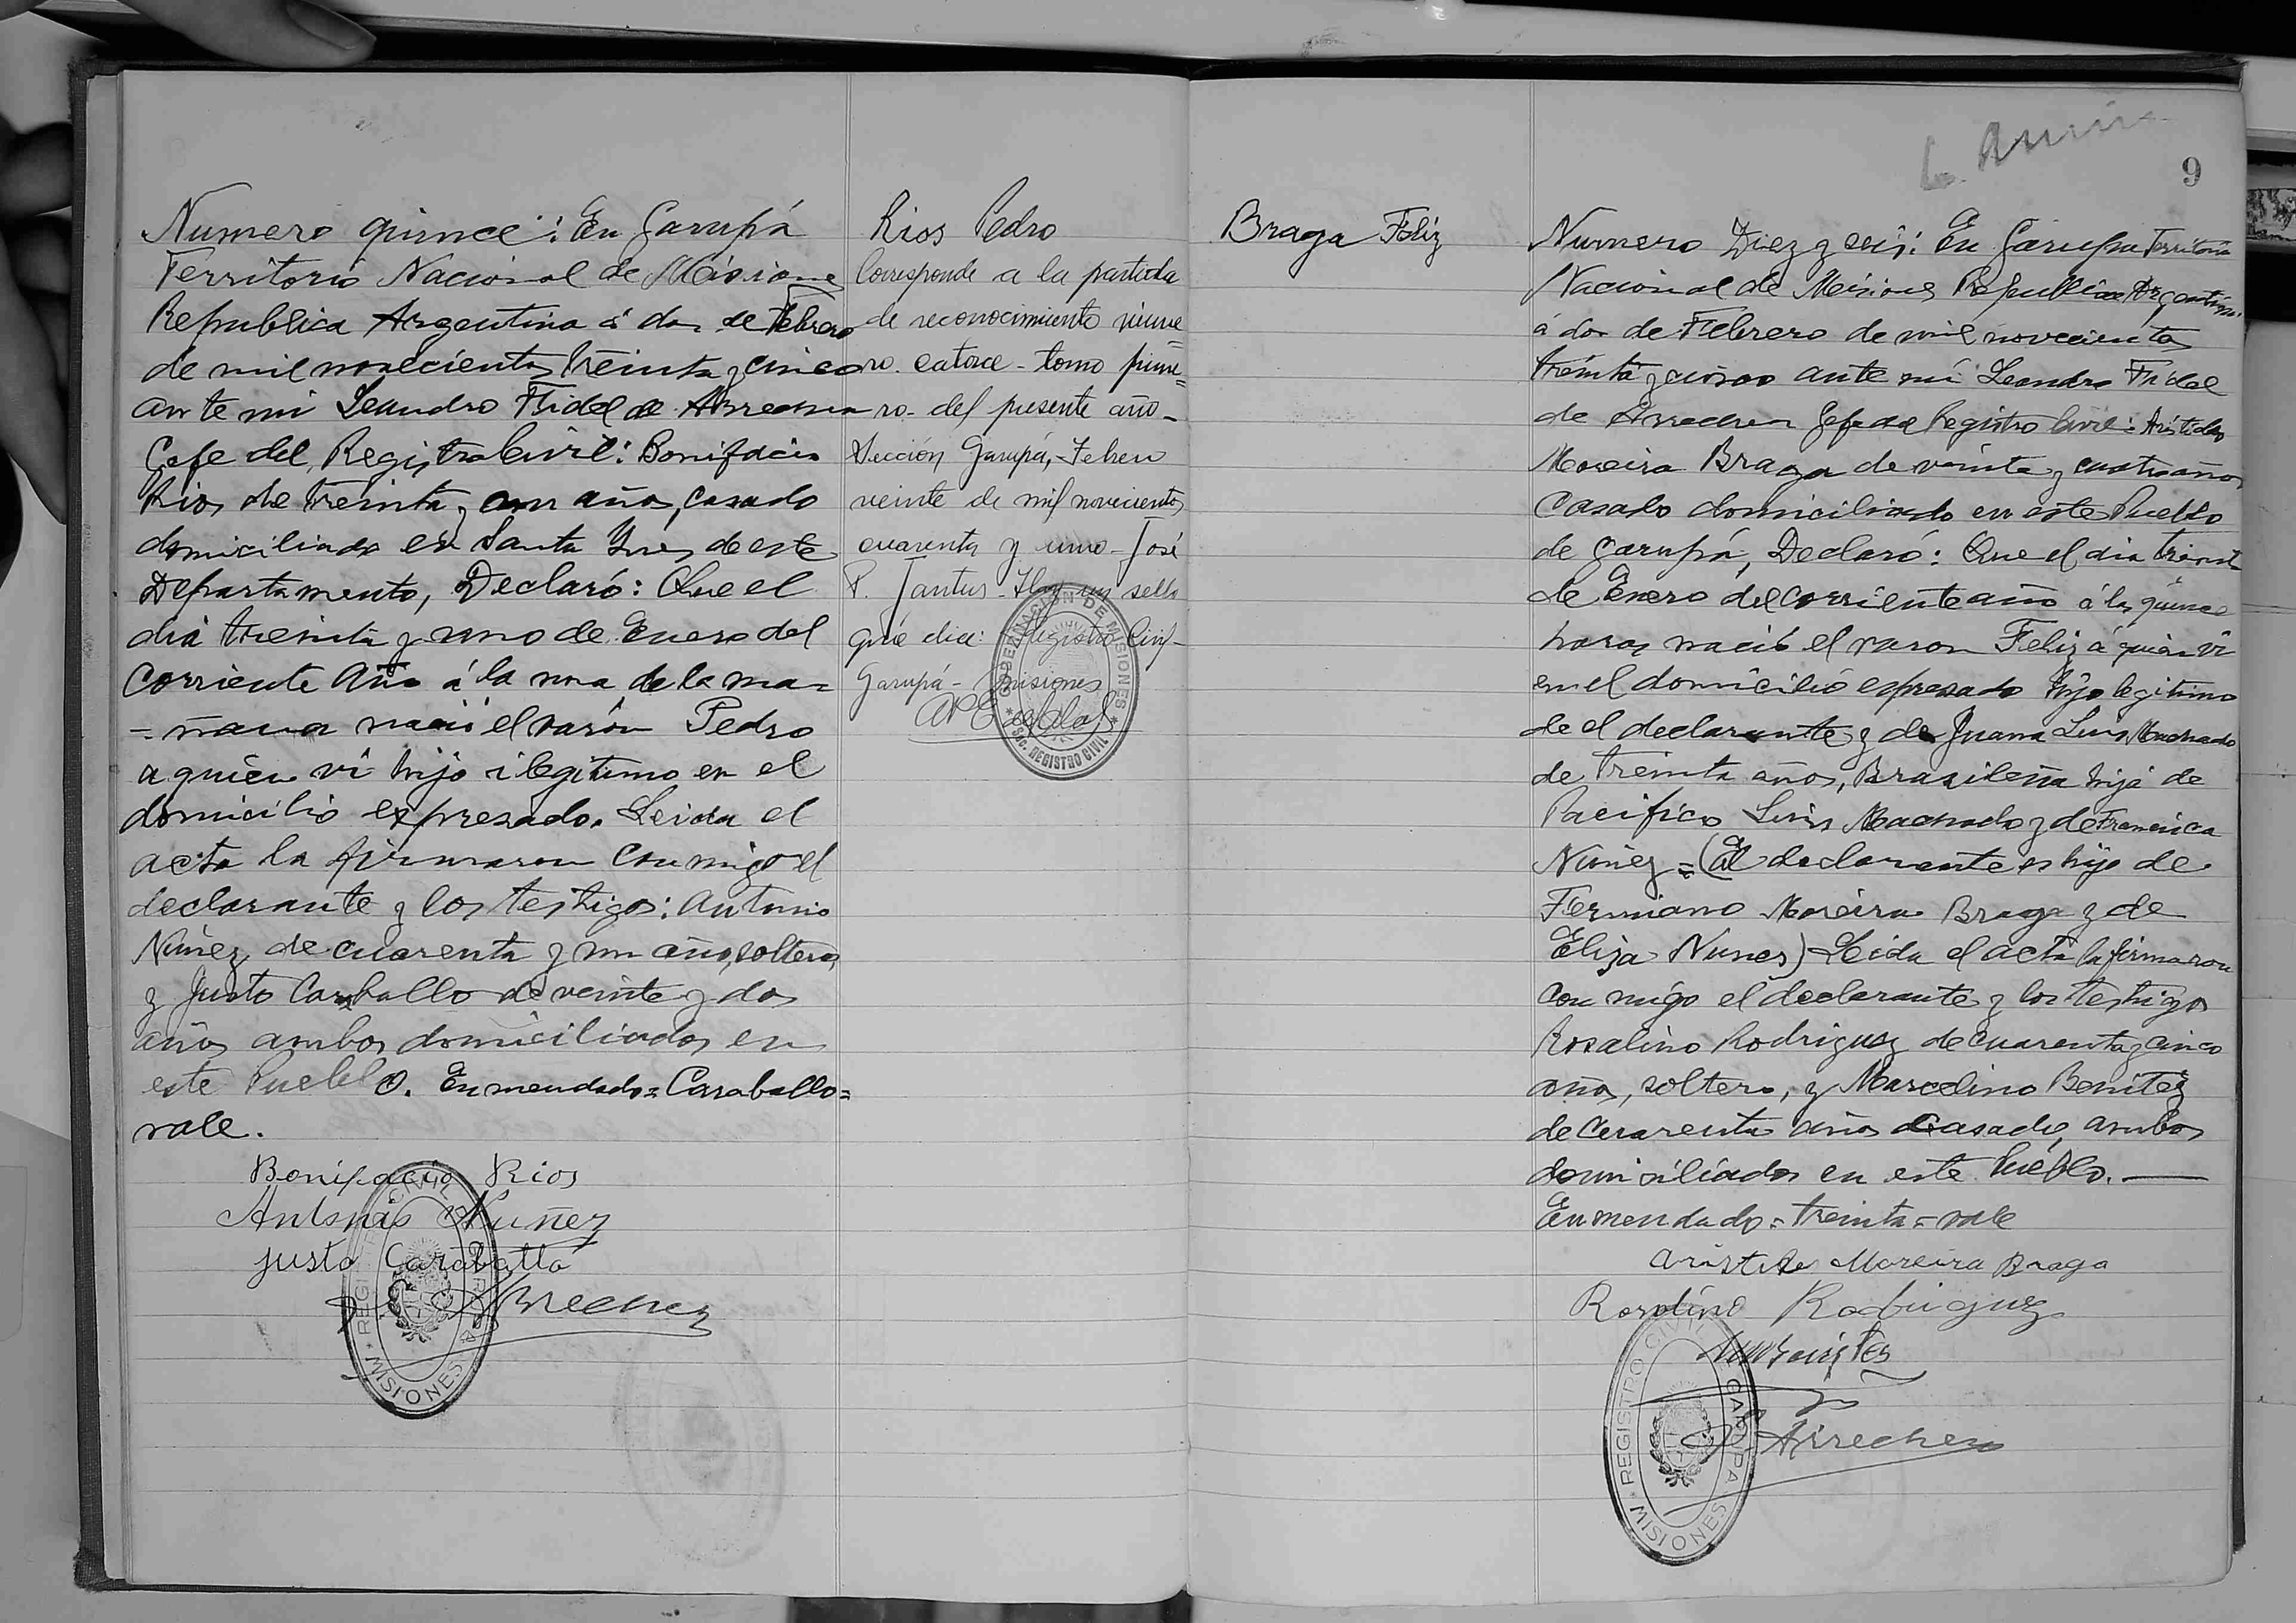 Numero quince: En Garupá
Territorio Nacional de Misiones
Republica Argentina á dos de Febrero
de mil novecientos treinta y cinco
ante mi Leandro Fidel de Arrechea
Gefe del Registro Civil: Bonifacio
Rios de treinta y un años, casado
domiciliado en Santa Ynes de este
Departamento, Declaró: Que el
dia treinta y uno de Enero del
corriente año á la una de la ma=
=ñana nació el varón Pedro
a quien vi hijo ilegitimo en el
domicilio expresado. Leida el
acta la firmaron conmigo el
declarante y los testigos: Antonio
Núñez de cuarenta y un años, soltero,
y Justo Caraballo de veinte y dos
años ambos domiciliados en
este Pueblo. Enmendado=Caraballo=
vale.
Bonifacio Rios
Antonio Nuñez
Justo Caraballo
Arrechea
REGISTRO CIVIL GARUPA
MISIONES
Rios Pedro
Corresponde a la partida
de reconocimiento núme=
ro catorce - tomo prime=
ro - del presente año -
Sección Garupá, - Febrero
veinte de mil novecientos
cuarenta y uno - José
P. Jantus - Hay un sello
que dice: Registro Civil -
Garupá - Misiones
GOBERNACION DE MISIONES
SEC. REGISTRO CIVIL
Braga Feliz
9
Numero Diez y seis: En Garupa Territorio
Nacional de Misiones Republica Argentina
á dos de Febrero de mil novecientos
treinta y cinco ante mi Leandro Fidel
de Arrechea Gefe del Registro Civil: Aristides
Moreira Braga de veinte y cuatro años
casado domiciliado en este Pueblo
de Garupá, Declaró: Que el dia treinta
de Enero del corriente año á las quince
horas nació el varon Feliz á quien vi
en el domicilio espresado hijo legitimo
de el declarante y de Juana Luis Machado
de treinta años, Brasileña hija de
Pacifico Luis Machado y de Francisca
Nuñez = (El declarante es hijo de
Fermiano Moreira Braga y de
Eliza Nunes) Leida el acta la firmaron
con migo el declarante y los testigos
Rosalino Rodriguez de cuarenta y cinco
años, soltero, y Marcelino Benitez
de cuarenta años casado, ambos
domiciliados en este Pueblo.
Enmendado = treinta = vale
Aristides Moreira Braga
Rosalino Rodriguez
Arrechea
REGISTRO CIVIL GARUPA
MISIONES